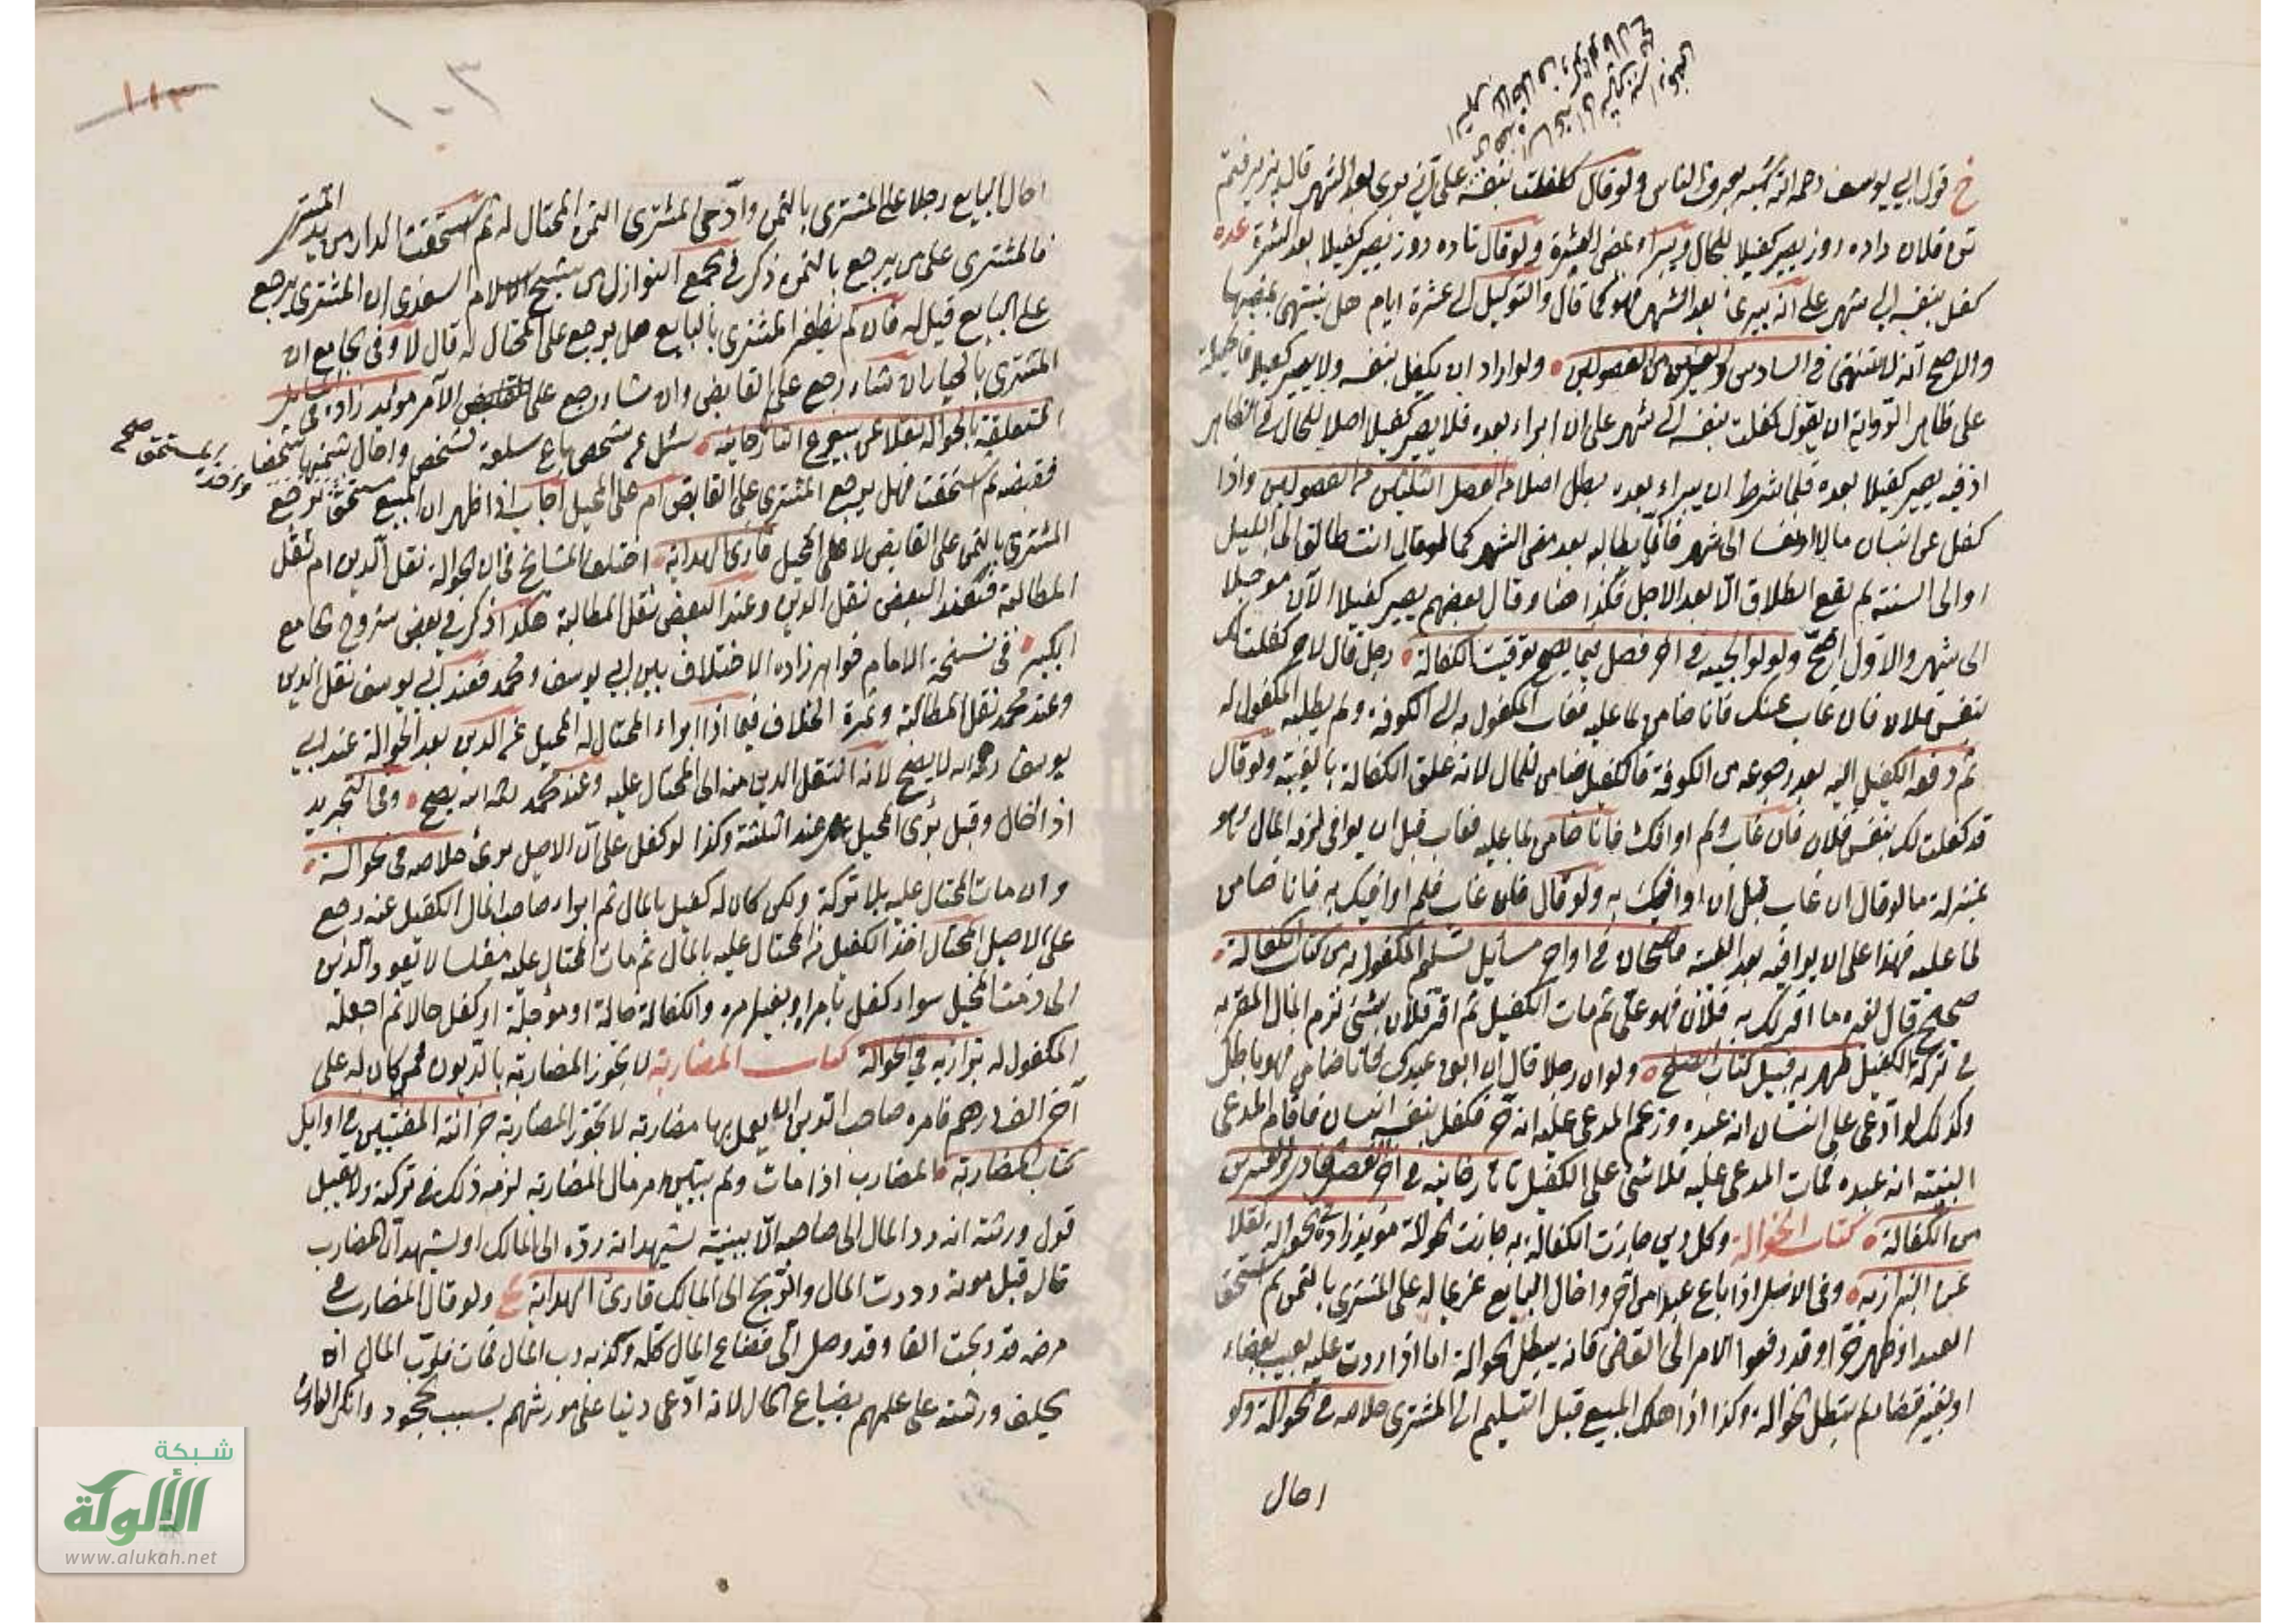 قول ابي يوسف رحمه الله اشبه بعرف الناس ولو قال كفلت بنفسه على اني برئ بعد الشهر قال
فلان داده روز يصير كفيلا للحال ويبراء بمضي العشرة ولو قال تا ده روز يصير كفيلا بعد العشرة عده
كفل بنفسه الى شهر على انه بيرئ بعد الشهر فهو كما قال والتوكيل الى عشرة ايام هل ينتهي بمضيها
والاصح انه لا ينتهي في السادس والعشرين من الفصولين ولو اراد ان يكفل بنفسه ولا يصير كفيلا
على ظاهر الرواية ان يقول كفلت بنفسه الى شهر على ان ابراء بعده فلا يصير كفيلا اصلا للحال في الظاهر
اذ فيه يصير كفيلا بعده فلما شرط ان يبراء بعده بطل اصلا من الفصل الثلثين من الفصولين واذا
كفل عن انسان مالا الى شهر فانما يطالبه بعد مضي الشهر كما لو قال انت طالق الى الليل
او الى السنة لم يقع الطلاق الا بعد الاجل فكذا هنا وقال بعضهم يصير كفيلا الآن مؤجلا
الى شهر والاول اصح ولولوالجية في آخر فصل فيما يصح توقيت الكفالة رجل قال لاخر كفلت لك
بنفس فلان فان غاب عنك فانا ضامن لما عليه فغاب المكفول به الى الكوفة ولم يطلبه المكفول له
ثم دفعه الكفيل اليه بعد رجوعه من الكوفة فالكفيل ضامن للمال لانه علق الكفالة بالغيبة ولو قال
قد كفلت لك بنفس فلان فان غاب ولم اوافك فانا ضامن لما عليه فغاب قبل ان يوافي لزمه المال
بمنزلة ما لو قال ان غاب قبل ان اوافيك به ولو قال فان غاب فلم اوافيك به فانا ضامن
لما عليه فهذا على ان يوافيه بعد الغيبة قاضيخان في اواخر مسائل تسليم المكفول به من كتاب الكفالة
صحيح قال لغيره ما اقر لك به فلان فهو علي ثم مات الكفيل ثم اقر فلان بشئ لزم المال المقر به
في تركة الكفيل ظهيرية قبيل كتاب الصلح ولو ان رجلا قال ان ابق عبدي فانا ضامن فهو باطل
وكذلك لو ادعى على انسان انه عبده وزعم المدعى عليه انه حر فكفل بنفسه انسان فاقام المدعي
البينة انه عبده فمات المدعى عليه فلا شئ على الكفيل تاتارخانيه في آخر الفصل الحادي والعشرين
من الكفالة كتاب الحوالة وكل دين جازت الكفالة به جازت الحوالة مؤيد زاده في الحوالة نقلا
عن البزازيه وفي الاصل اذا باع عبدا من آخر واحال البايع غريما له على المشتري بالثمن ثم استحق
العبد او ظهر حرا وقد رفعوا الامر الى القاضي فانه يبطل الحوالة اما اذا ردت عليه بعيب بقضاء
او بغير قضا لم تبطل الحوالة وكذا اذا هلك المبيع قبل التسليم الى المشتري خلاصه في الحوالة ولو
احال
احال البايع رجلا على المشتري بالثمن وادى المشتري الثمن المحتال له ثم استحقت الدار من يد المشتري
فالمشتري على من يرجع بالثمن ذكر في مجمع النوازل من شيخ الاسلام السغدي ان المشتري يرجع
على البايع قيل له فان لم يظفر المشتري بالبايع هل يرجع على المحتال له قال لا وفي الجامع ان
المشتري بالخيار ان شاء رجع على القابض وان شاء رجع على الآمر مؤيد زاده في المسائل
المتعلقة بالحوالة نقلا عن بيوع التاتارخانيه سئل عن شخص باع سلعة لشخص واحال بثمنها شخصا
فقبضه ثم استحقت فهل يرجع المشتري على القابض ام على المحيل اجاب اذا ظهر ان المبيع مستحق يرجع
المشتري بالثمن على القابض لا على المحيل قارئ الهداية اختلف المشايخ في ان الحوالة نقل الدين ام نقل
المطالبة فعند البعض نقل الدين وعند البعض نقل المطالبة هكذا ذكر في بعض شروح الجامع
الكبير في نسخة الامام خواهر زاده الاختلاف بين ابي يوسف ومحمد فعند ابي يوسف نقل الدين
وعند محمد نقل المطالبة وثمرة الخلاف فيما اذا ابراء المحتال له المحيل عن الدين بعد الحوالة عند ابي
يوسف رحمه الله لا يصح لانه انتقل الدين منه الى المحتال عليه وعند محمد رحمه الله يصح وفي التجريد
اذا احال وقبل برئ المحيل عند الثلثة وكذا لو كفل على ان الاصيل برئ خلاصه في الحوالة
وان مات المحتال عليه بلا تركة ولكن كان له كفيل بالمال ثم ابراء صاحب المال الكفيل عنه رجع
على الاصيل المحتال اخذ الكفيل من المحتال عليه بالمال ثم مات المحتال عليه مفلسا لا يعود الدين
الى ذمة المحيل سواء كفل بامره او بغير امره والكفالة حالة او مؤجلة او كفل حالا ثم اجله
المكفول له بزازيه في الحوالة كتاب المضاربة لا يجوز المضاربة بالديون فمن كان له على
آخر الف درهم فامره صاحب الدين ان يعمل بها مضاربة لا تجوز المضاربة خزانة المفتيين في اوايل
كتاب المضاربة المضارب اذا مات ولم يبين مر مال المضاربة لزمه ذلك في تركته ولا يقبل
قول ورثته انه رد المال الى صاحبه الا ببينة يشهد انه رده الى المالك او يشهد ان المضارب
قال قبل موته رددت المال والربح الى المالك قارئ الهداية ولو قال المضارب في
مرضه قد ربحت الفا وقد وصل الي فضاع المال كله وكذبه رب المال فمات فلرب المال ان
يحلف ورثته على علمهم بضياع المال لانه ادعى دينا على مورثهم بسبب الجحود وانكر الوارث
١١٣
صح
شبكة
الألوكة
www.alukah.net